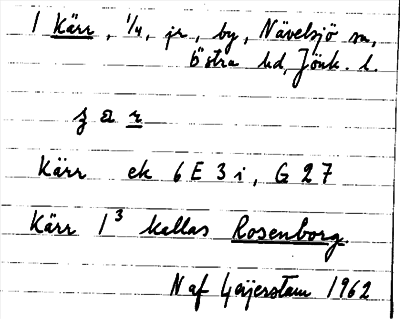 1 Kärr, 1/4, jr, by, Nävelsjö sn,
Östra hd, Jönk. l.
z a r
Kärr ek 6 E 3 i, G 27
Kärr 1³ kallas Rosenborg.
N af Geijerstam 1962